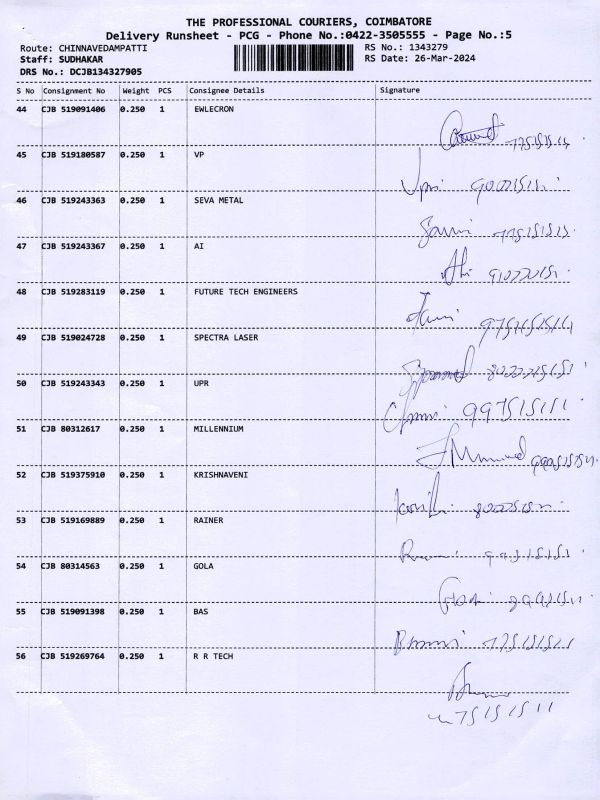 THE PROFESSIONAL COURIERS, COIMBATORE
Delivery Runsheet - PCG - Phone No.:0422-3505555 - Page No.:5
Route: CHINNAVEDAMPATTI RS No.: 1343279
Staff: SUDHAKAR RS Date: 26-Mar-2024
DRS No.: DCJB134327905
S No Consignment No Weight PCS Consignee Details Signature
44 CJB 519091406 0.250 1 EWLECRON
45 CJB 519180587 0.250 1 VP
46 CJB 519243363 0.250 1 SEVA METAL
47 CJB 519243367 0.250 1 AI
48 CJB 519283119 0.250 1 FUTURE TECH ENGINEERS
49 CJB 519024728 0.250 1 SPECTRA LASER
50 CJB 519243343 0.250 1 UPR
51 CJB 80312617 0.250 1 MILLENNIUM
52 CJB 519375910 0.250 1 KRISHNAVENI
53 CJB 519169889 0.250 1 RAINER
54 CJB 80314563 0.250 1 GOLA
55 CJB 519091398 0.250 1 BAS
56 CJB 519269764 0.250 1 R R TECH